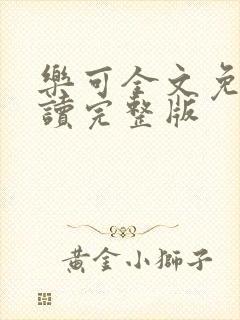 樂可全文免
讀完整版
黃金小獅子